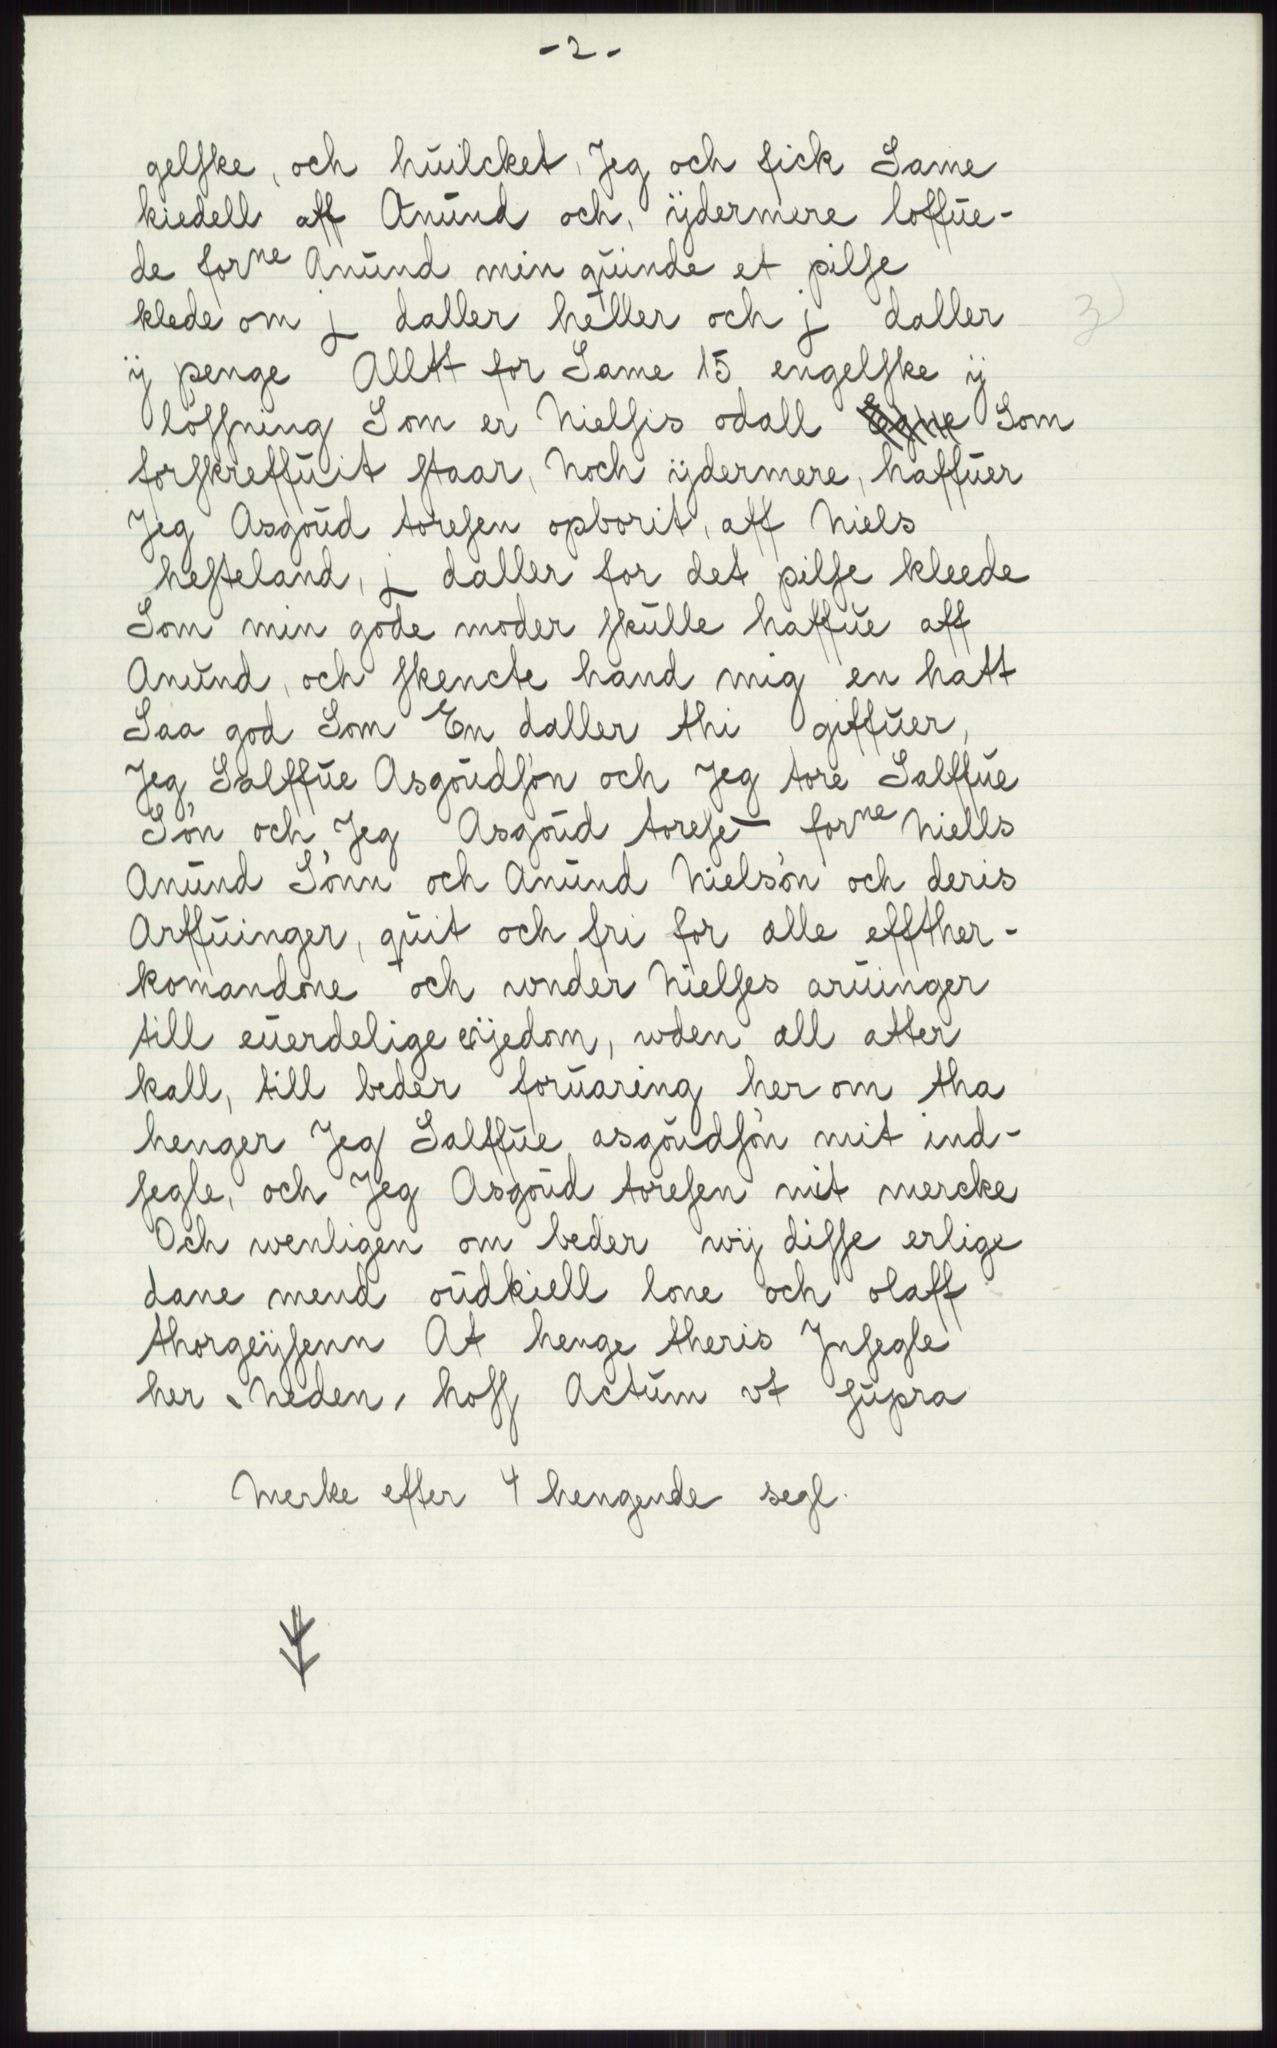 - 2 -
gelske, och huilcket, Jeg och fick Same
kiedell aff Anund och, ijdermere loffue-
de forne Anund min quinde et pilse
klede om j daller heller och j daller
ij penge Alltt for Same 15 engelske ij
løssning Som er Nielsis odall Som
forskreffuit staar, Noch ijdermere, haffuer
Jeg Asgoud toresen opborit, aff Niels
hesteland, j daller for det pilse kleede
Som min gode moder skulle haffue aff
Anund, och skencte hand mig en hatt
Saa god Som En daller thi giffuer,
Jeg Salffue Asgoudsøn och Jeg tore Salffue
Søn och Jeg Asgoud torese- forne Niells
Anund Sønn och Anund Nielsøn och deris
Arffuinger, quit och fri for alle effther-
komandone och wnder Nielses aruinger
till euerdelige eijedom, wden all atter
kall, till beder foruaring her om tha
henger Jeg Salffue asgoudsøn mit ind-
segle, och Jeg Asgoud toresen mit mercke
Och wenligen om beder wij disse erlige
dane mend oudkiell lone och olaff
thorgeijsenn At henge theris Insegle
her Neden, hoss Actum vt supra
Merke efter 4 hengende segl.